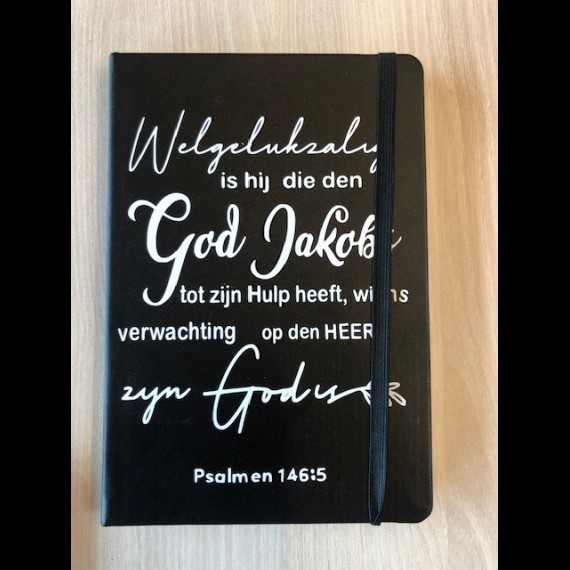 Welgelukzalig
is hij die den
God Jakobs
tot zijn Hulp heeft, wiens
verwachting op den HEER
zijn God is
Psalmen 146:5